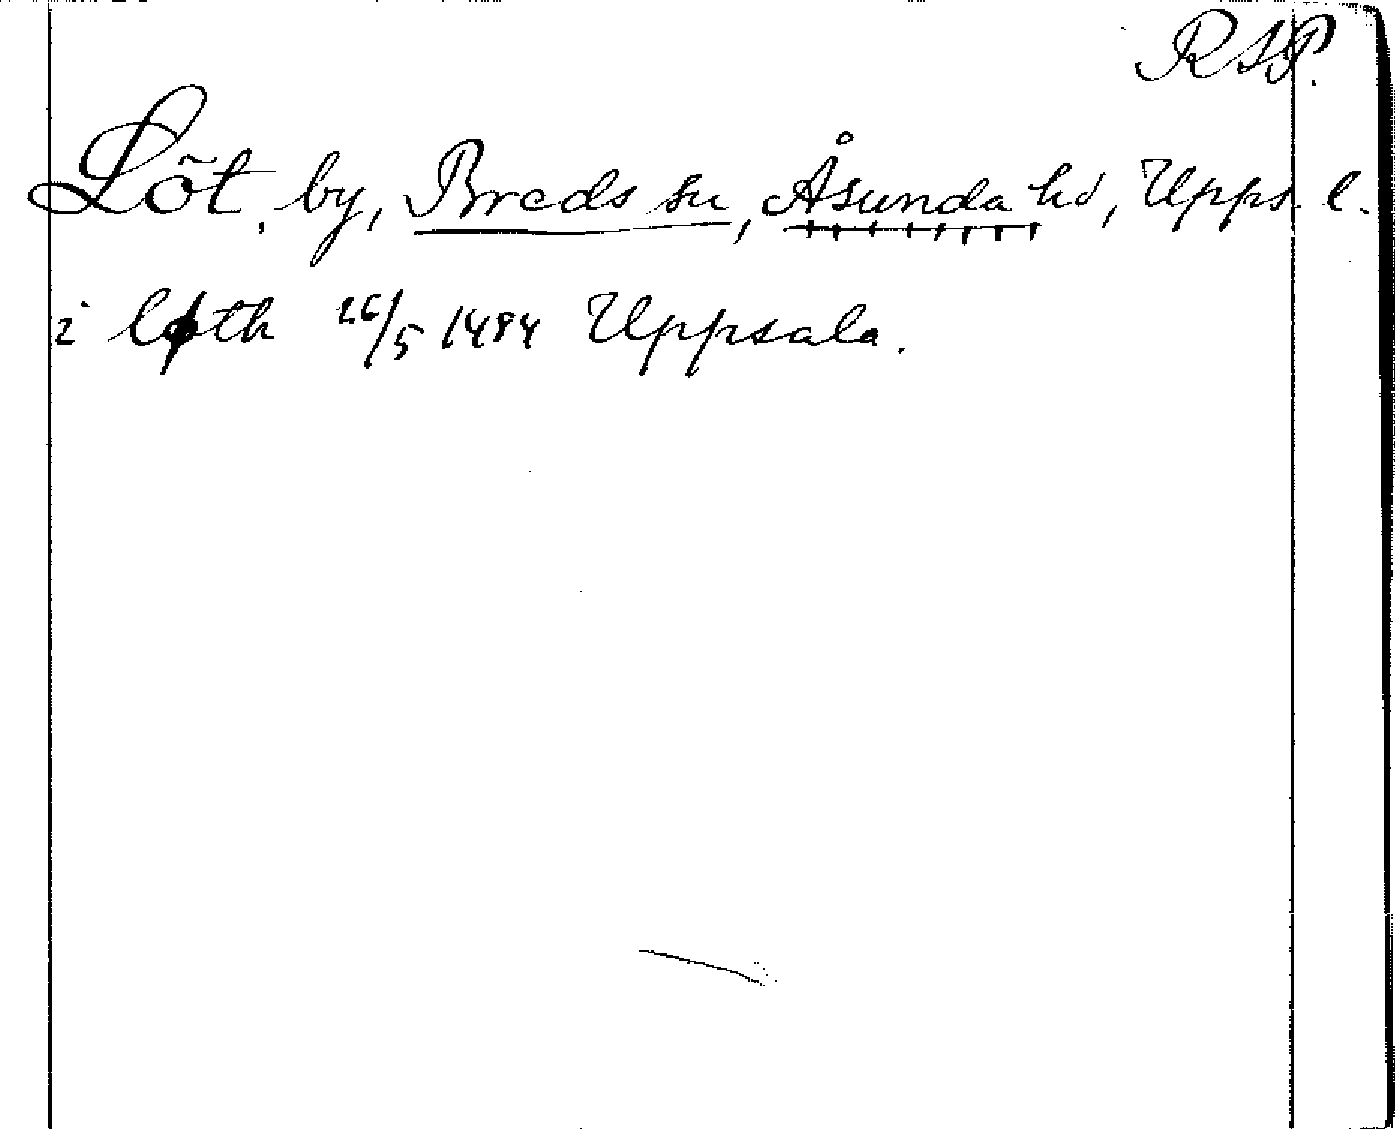 RAP.
Löt, by, Breds sn, Åsunda hd, Upps. l.
i løth 26/5 1484 Uppsala.